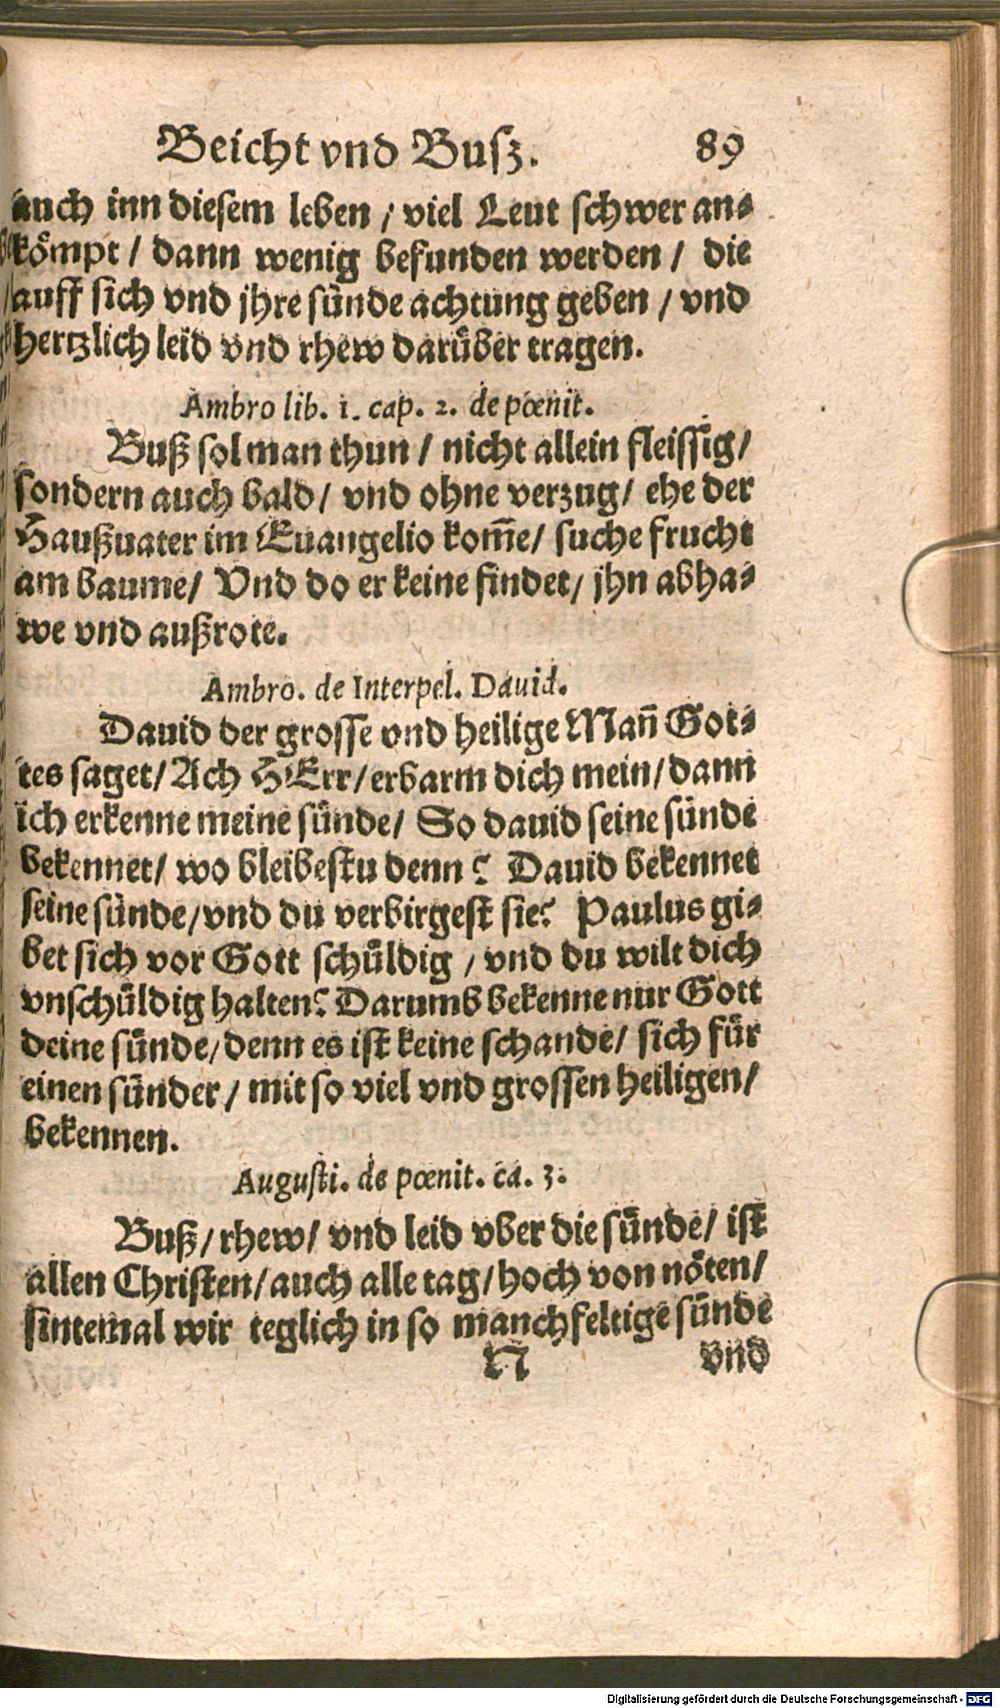 Beicht vnd Busz. 89
auch inn diesem leben / viel Leut schwer an⸗
kömpt / dann wenig befunden werden / die
auff sich vnd jhre sünde achtung geben / vnd
hertzlich leid vnd rhew darüber tragen.
Ambro lib. 1. cap. 2. de pœnit.
Buß sol man thun / nicht allein fleissig /
sondern auch bald / vnd ohne verzug / ehe der
Haußuater im Euangelio kom̃e / suche frucht
am baume / Vnd do er keine findet / jhn abha⸗
we vnd außrote.
Ambro. de Interpel. Dauid.
Dauid der grosse vnd heilige Mañ Got⸗
tes saget / Ach HErr / erbarm dich mein / dann
ich erkenne meine sünde / So dauid seine sünde
bekennet / wo bleibestu denn? Dauid bekennet
seine sünde / vnd du verbirgest sie? Paulus gi⸗
bet sich vor Gott schüldig / vnd du wilt dich
vnschüldig halten? Darumb bekenne nur Gott
deine sünde / denn es ist keine schande / sich für
einen sünder / mit so viel vnd grossen heiligen /
bekennen.
Augusti. de pœnit. ca. 3.
Buß / rhew / vnd leid vber die sünde / ist
allen Christen / auch alle tag / hoch von nöten /
sintemal wir teglich in so manchfeltige sünde
N vnd
Digitalisierung gefördert durch die Deutsche Forschungsgemeinschaft - DFG